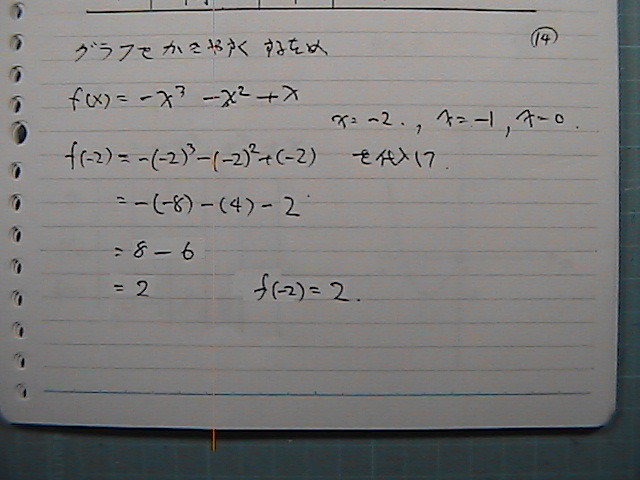 ⑭
グラフをかきやすくするため
f(x) = -x³ - x² + x
x = -2. , x = -1 , x = 0 .
f(-2) = -(-2)³ - (-2)² + (-2) を代入して
= -(-8) - (4) - 2
= 8 - 6
= 2 f(-2) = 2.